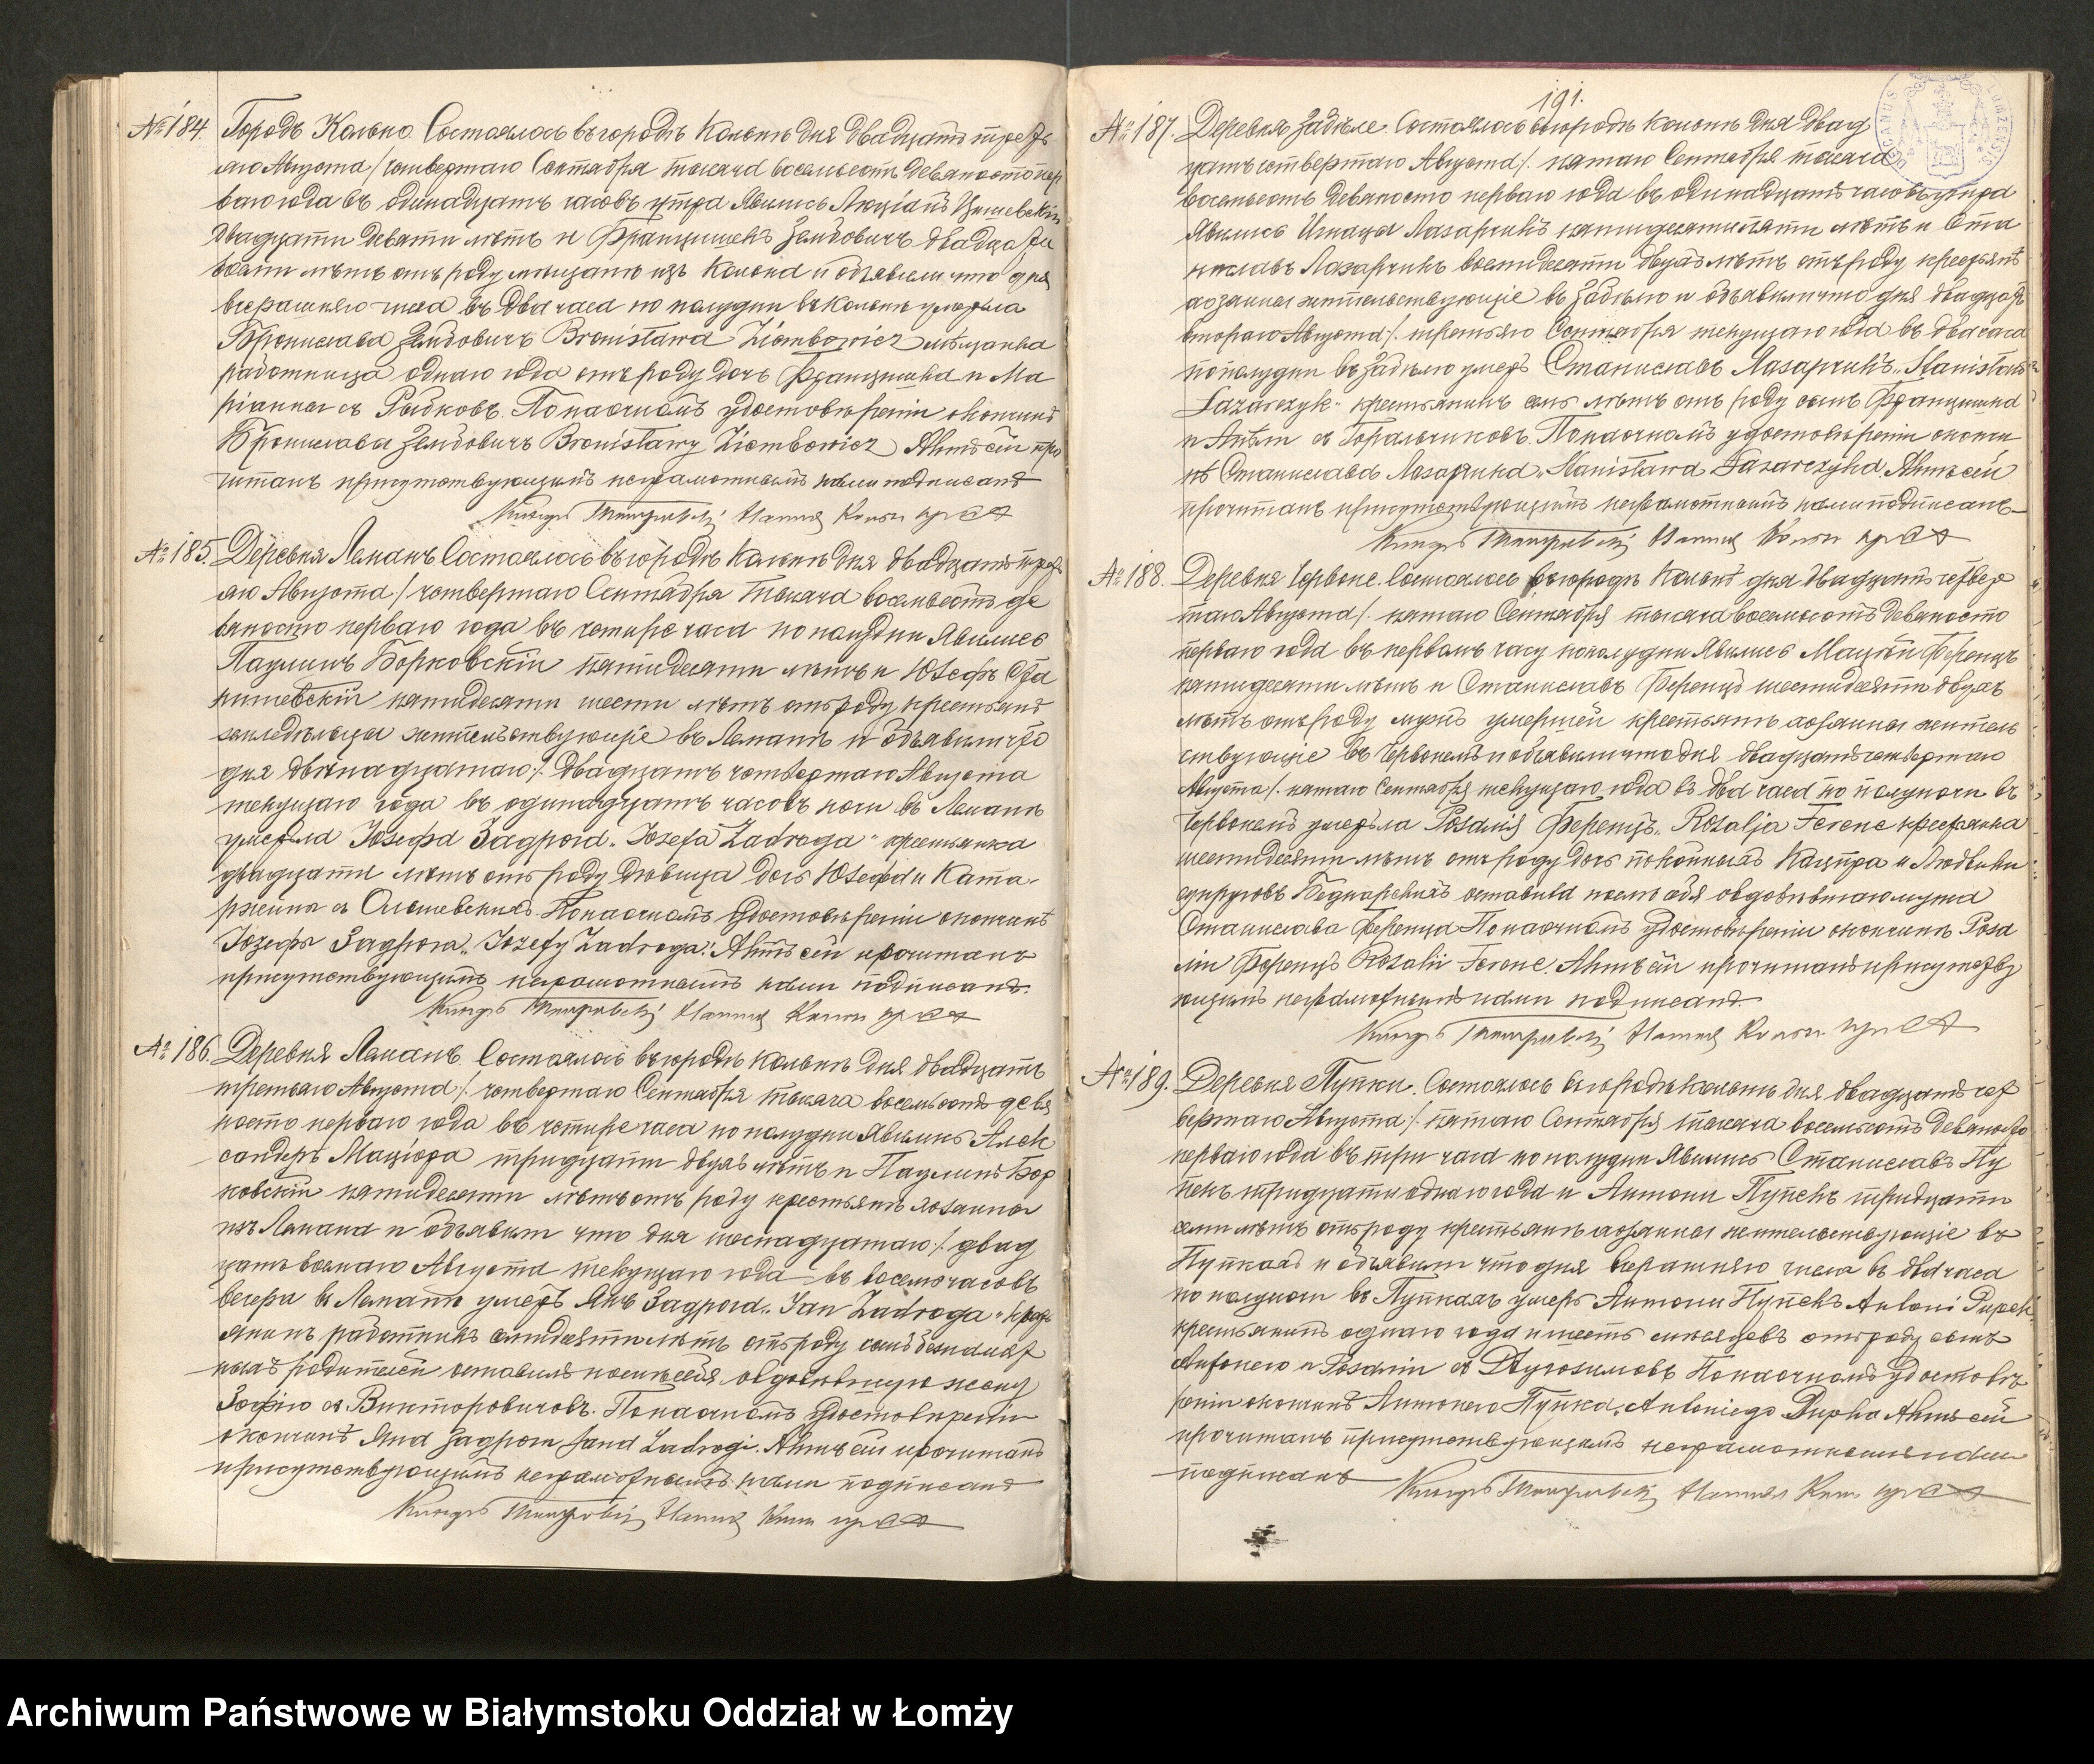 № 184. Городъ Кольно. Состоялось въ городѣ Кольнѣ дня двадцать треть
яго Августа /: четвертаго Сентября тысяча восемьсотъ девяносто пер
ваго года въ одинадцать часовъ утра Явились Люціанъ
двадцати девяти лѣтъ и Францишекъ Зембовичъ двадцати
восьми лѣтъ отъ роду мѣщане изъ Кольна и объявили что дня
вчерашняго числа въ два часа по полудни въ Кольнѣ умерла
Бронислава Зембовичъ Bronisława Ziembowicz мѣщанка
работница одного года отъ роду дочь Францишка и Ма
ріанны съ Рыбковъ. По наочномъ удостовѣреніи о кончинѣ
Брониславы Зембовичъ Bronisławy Ziembowicz Актъ сей про
читанъ присутствующимъ неграмотнымъ нами подписанъ
№ 185. Деревня Леманъ. Состоялось въ городѣ Кольнѣ дня двадцать треть
яго Августа /: четвертаго Сентября тысяча восемьсотъ де
вяносто перваго года въ четыре часа по полудни Явились
Паулинъ Борковскій пятидесяти лѣтъ и Юзефъ Ста
нишевскій пятидесяти шести лѣтъ отъ роду крестьяне
земледѣльцы жительствующіе въ Леманѣ и объявили что
дня двѣнадцатаго /: двадцать четвертаго Августа
текущаго года въ одинадцать часовъ ночи въ Леманѣ
умерла Юзефа Задрога „Józefa Zadroga" крестьянка
двадцати лѣтъ отъ роду дѣвица дочь Юзефа и Ката-
ржины съ Ольшевскихъ. По наочномъ удостовѣреніи о кончинѣ
Юзефы Задрога „Józefy Zadroga". Актъ сей прочитанъ
присутствующимъ неграмотнымъ нами подписанъ.
№ 186. Деревня Леманъ. Состоялось въ городѣ Кольнѣ дня двадцать
третьяго Августа /: четвертаго Сентября тысяча восемьсотъ девя
носто перваго года въ четыре часа по полудни Явились Алек
сандеръ Маціора тридцати двухъ лѣтъ и Паулинъ Бор
ковскій пятидесяти лѣтъ отъ роду крестьяне хозяины
изъ Лемана и объявили что дня шеснадцатаго /: двад
цать восьмаго Августа текущаго года въ восемь часовъ
вечера въ Леманѣ умеръ Янъ Задрога „Jan Zadroga" крестъ
янинъ работникъ семидесяти лѣтъ отъ роду сынъ
ныхъ родителей оставилъ послѣ себя овдовѣвшую жену
Зофію съ Викторовичовъ. По наочномъ удостовѣреніи
о кончинѣ Яна Задроги Jana Zadrogi. Актъ сей прочитанъ
присутствующимъ неграмотнымъ нами подписанъ
191.
№ 187. Деревня Забѣле. Состоялось въ городѣ Кольнѣ дня двад
цать четвертаго Августа /: пятаго Сентября тысяча
восемьсотъ девяносто перваго года въ одинадцать часовъ утра
Явились Игнацы Лазарчикъ пятидесяти пяти лѣтъ и Ста
ниславъ Лазарчикъ восмидесяти двухъ лѣтъ отъ роду крестьяне
хозяины жительствующіе въ Забѣлю и объявили что дня двадцать
втораго Августа /: третьяго Сентября текущаго года въ два часа
по полудни въ Забѣлю умеръ Станиславъ Лазарчикъ „Stanisław
Łazarczyk" крестьянинъ семь лѣтъ отъ роду сынъ Францишка
и Анны съ Горальчиковъ. По наочномъ удостовѣреніи о кончи
нѣ Станислава Лазарчика „Stanisława Łazarczyka Актъ сей
прочитанъ присутствующимъ неграмотнымъ нами подписанъ
№ 188. Деревня Червоне. Состоялось въ городѣ Кольнѣ дня двадцать четвер
таго Августа /: пятаго Сентября тысяча восемьсотъ девяносто
перваго года въ первомъ часу по полудни Явились Мацѣй Ференцъ
пятидесяти лѣтъ и Станиславъ Ференцъ шестидесяти двухъ
лѣтъ отъ роду мужъ умершей крестьяне хозяины житель
ствующіе въ Червонемъ и объявили что дня двадцать четвертаго
Августа /: пятаго Сентября текущаго года въ два часа по полуночи въ
Червонемъ умерла Розалія Ференцъ „Rozalja Ferenc крестьянка
шестидесяти лѣтъ отъ роду дочь покойныхъ Кацпра и Людвики
супруговъ Беднарскихъ оставила послѣ себя овдовѣвшаго мужа
Станислава Ференца По наочномъ удостовѣреніи о кончинѣ Роза
ліи Ференцъ Rozalii Ferenc. Актъ сей прочитанъ присутству
ющимъ неграмотнымъ нами подписанъ.
№ 189. Деревня Пупки. Состоялось въ городѣ Кольнѣ дня двадцать чет
вертаго Августа /: пятаго Сентября тысяча восемьсотъ девяносто
перваго года въ три часа по полудни Явились Станиславъ Пу
пекъ тридцати одного года и Антони Пупекъ тридцати
семи лѣтъ отъ роду крестьяне хозяины жительствующіе въ
Пупкахъ и объявили что дня вчерашняго числа въ два часа
по полуночи въ Пупкахъ умеръ Антони Пупекъ Antoni Pupek
крестьянинъ одного года и шесть мѣсяцевъ отъ роду сынъ
Антонего и Розаліи съ Длугозимовъ По наочномъ удостовѣ
реніи о кончинѣ Антонего Пупка „Antoniego Pupka Актъ сей
прочитанъ присутствующимъ неграмотнымъ нами
подписанъ
Archiwum Państwowe w Białymstoku Oddział w Łomży